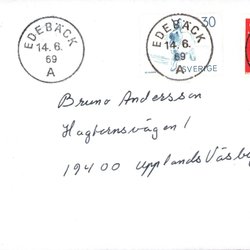 EDEBÄCK
14. 6.
69
A
EDEBÄCK
14. 6.
69
A
30
SVERIGE
Bruno Andersson
Hagtornsvägen 1
19400 Upplands Väsby